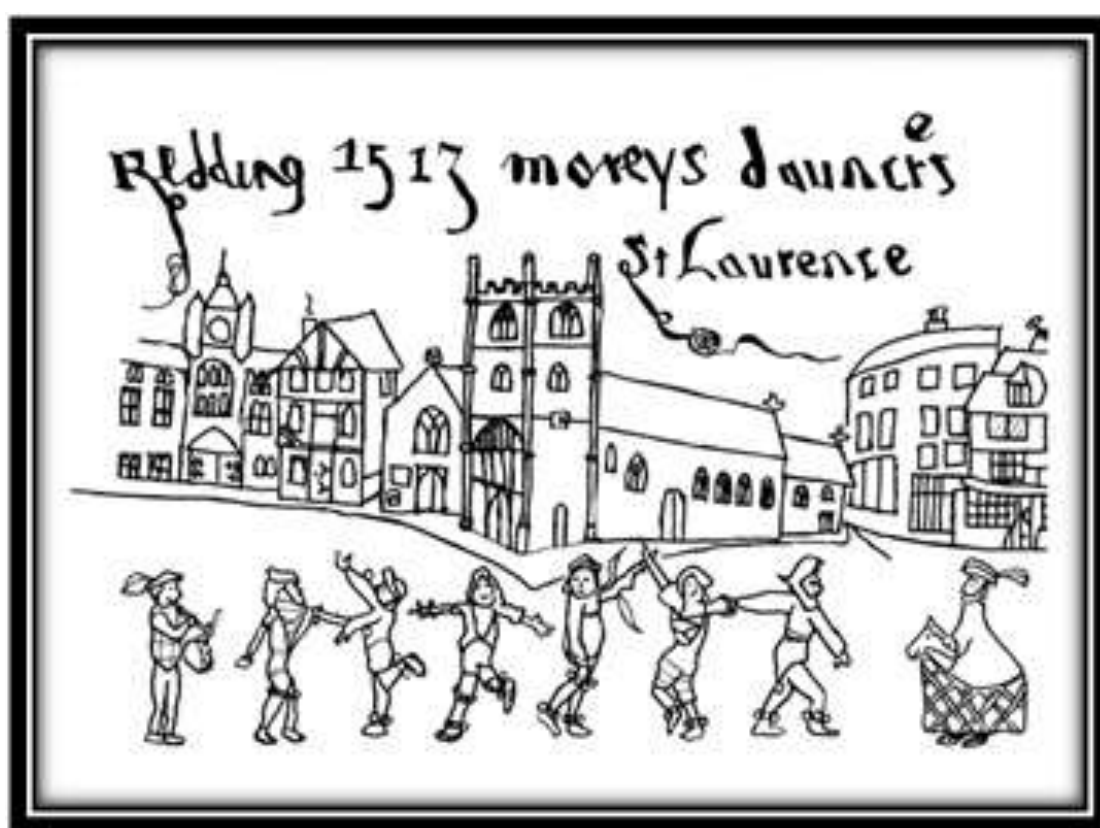 Redding 1513 moreys dauncers
St Laurence